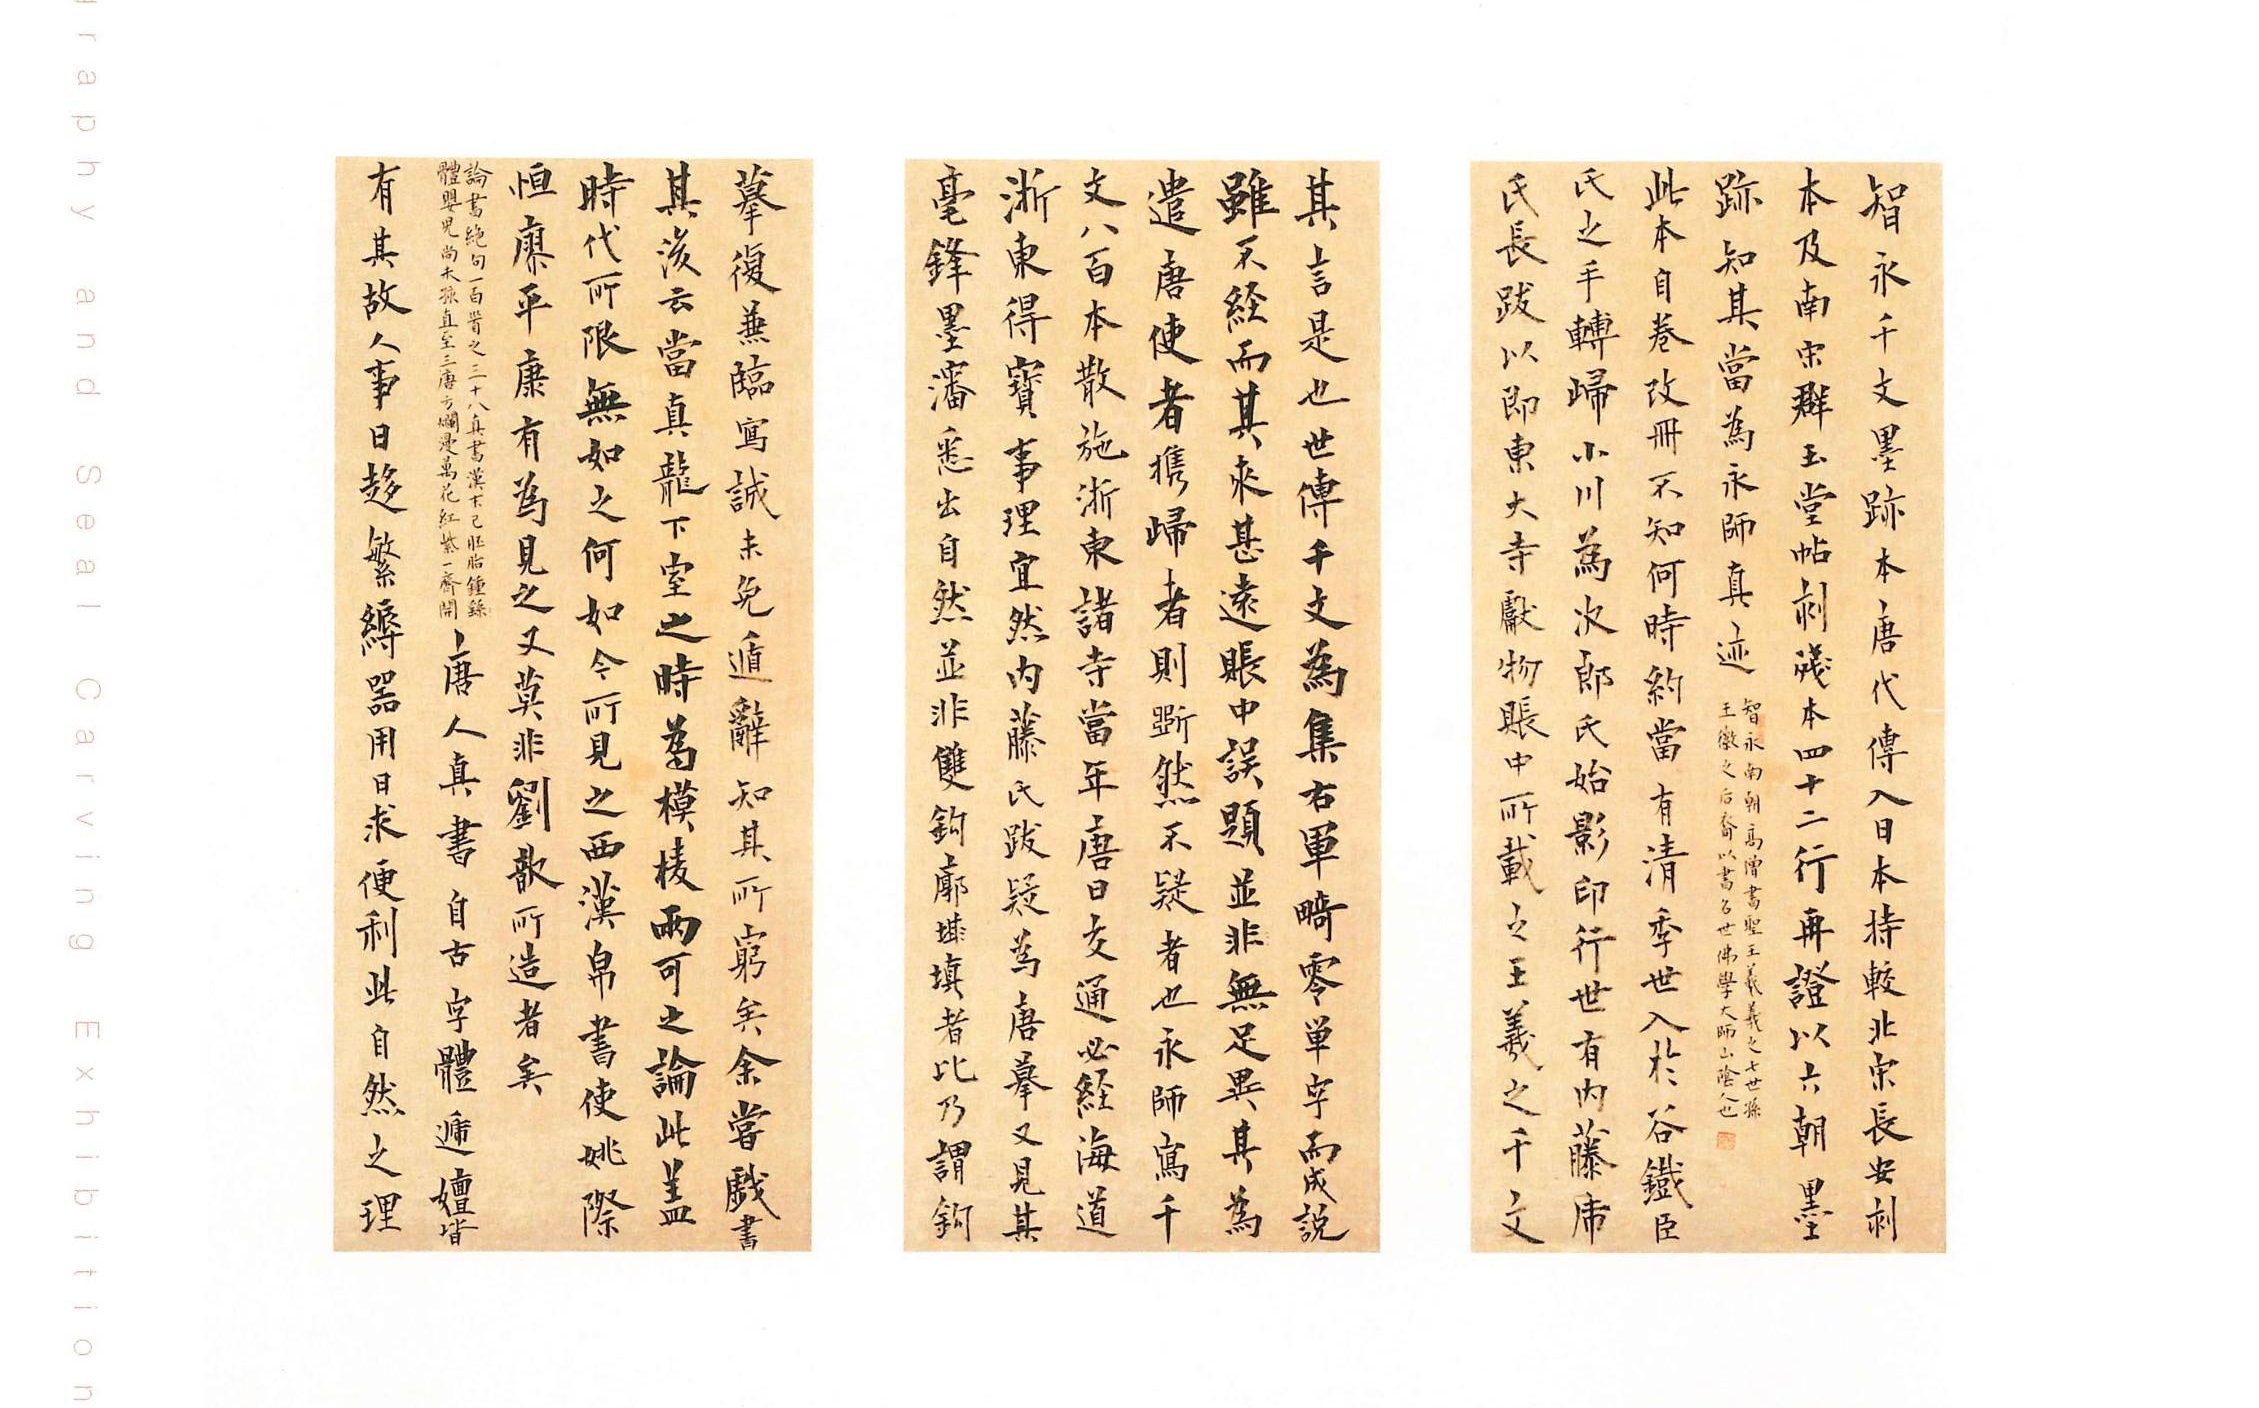 智永千文墨跡本唐代傳入日本持較北宋長安刹
本及南宋群玉堂帖刹殘本四十二行再證以六朝墨
跡知其當為永師真迹
智永南朝高僧書聖王羲羲之七世孫
王徽之后裔以書名世佛學大師山陰人也
此本自卷改冊不知何時約當有清季世入於谷鐵臣
氏之手轉歸小川為次郎氏始影印行世有內藤虎
氏長跋以即東大寺獻物賬中所載之王羲之千文
其言是也世傳千文為集右軍畸零单字而成説
雖不経而其來甚遠賬中誤題並非無足異其為
遣唐使者携歸者則斷然不疑者也永師寫千
文八百本散施浙東諸寺當年唐日交通必経海道
浙東得寶事理宜然内藤氏跋疑為唐摹又見其
毫鋒墨瀋悉出自然並非雙鉤廓填填者比乃謂鉤
摹復兼臨寫誠未免遁辭知其所窮矣余嘗戲書
其後云當真龍下室之時為模棱兩可之論此盖
時代所限無如之何如今所見之西漢帛書使姚際
恒廖平康有為見之又莫非劉歆所造者矣
論書絶句一百首之三十八真書漢末已胚胎鍾繇
體嬰兒尚未孩直至三唐方爛漫萬花紅紫一齊開
唐人真書自古字體遞嬗皆
有其故人事日趍繁縟器用日求便利此自然之理
graphy and Seal Carving Exhibition